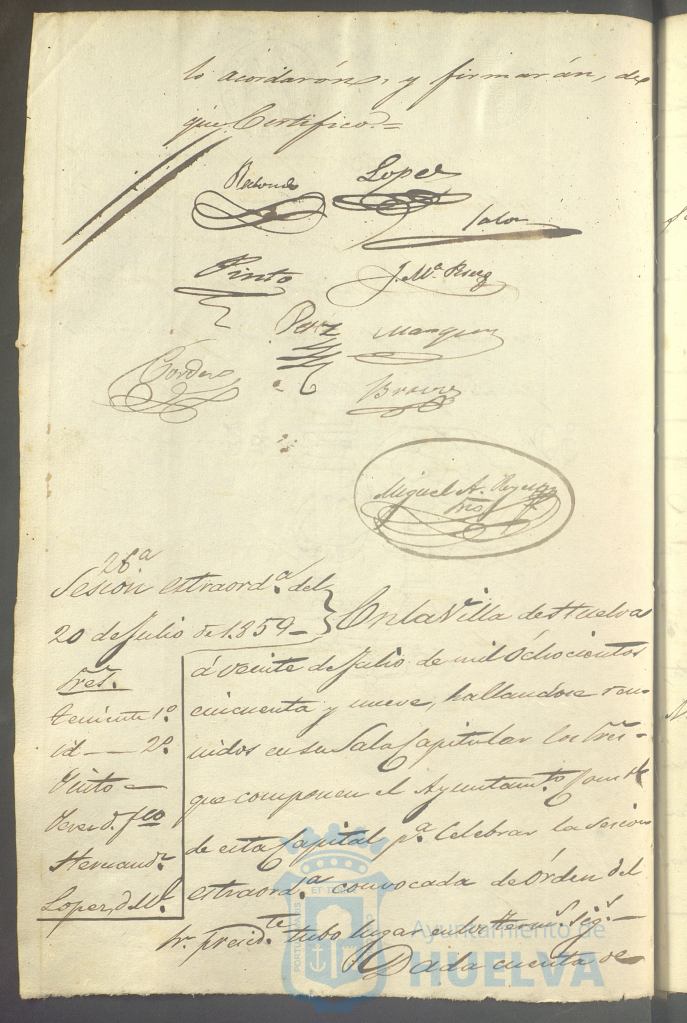 lo acordarón, y firmarán, de
que Certifico.=
Redondo Lopez
Pinto J. Mª. Perez
Perez Marquez
Cordero
Bravo
Miguel A.
26.ª
Sesion estraord.ª del
20 de Julio de 1.859_
Sres.
teniente 1º.
id — — 2º.
Pinto —
Perez d. Fco
Hernandz.
Lopez, d. Ml.
En la Villa de Huelva
á veinte de Julio de mil Ochocientos
cincuenta y nueve, hallandose reu-
nidos en su Sala Capitular los Sres -
que componen el Ayuntamto. Const
de esta Capital pª. Celebrar la Sesion
estraord.ª convocada de órden del
Sr. presidte. tubo lugar en los term.s sig.s —
Dada cuenta de
PORTUS MARIS
Ayuntamiento de
HUELVA